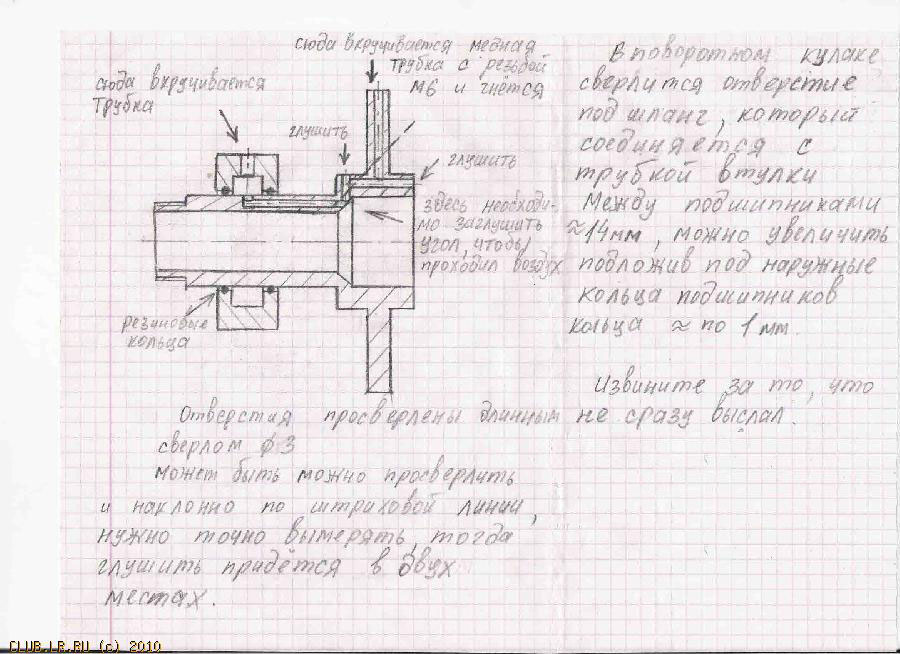 сюда вкручивается
трубка
сюда вкручивается медная
трубка с резьбой
М6 и гнётся
глушить
глушить
здесь необходи-
мо заглушить
угол, чтобы
проходил воздух
резиновые
кольца
В поворотном кулаке
сверлится отверстие
под шланг, который
соединяется с
трубкой втулки
Между подшипниками
≈14мм, можно увеличить
подложив под наружные
кольца подшипников
кольца ≈ по 1 мм.
Извините за то, что
не сразу выслал.
Отверстия просверлены длинным
сверлом ф3
может быть можно просверлить
и наклонно по штриховой линии,
нужно точно вымерять, тогда
глушить придётся в двух
местах.
CLUB.LR.RU (c) 2010